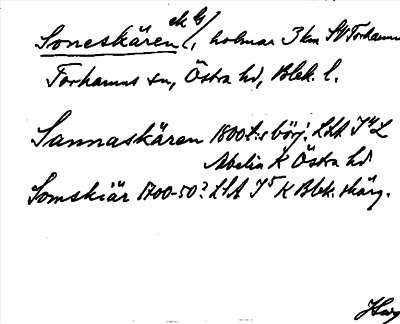 ek G
Soneskären, holmar 3 km SV Torhamn
Torhamns sn, Östra hd, Blek. l.
Sannaskären 1800t:s börj. LSA I⁴ L
Abelin K Östra hd
Somskiär 1700-50? LSA I⁵ K Blek. skärg.